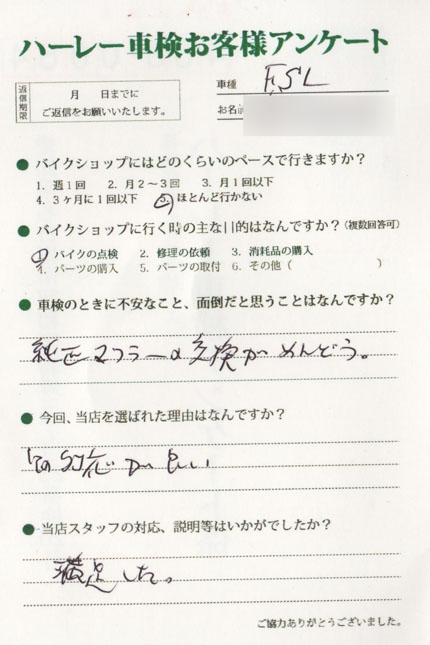 ハーレー車検お客様アンケート
返信期限 月 日までにご返信をお願いいたします。
車種 FSL
お名前
● バイクショップにはどのくらいのペースで行きますか？
1. 週1回 2. 月2〜3回 3. 月1回以下
4. 3ヶ月に1回以下 5. ほとんど行かない
● バイクショップに行く時の主な目的はなんですか？(複数回答可)
1. バイクの点検 2. 修理の依頼 3. 消耗品の購入
4. パーツの購入 5. パーツの取付 6. その他（ ）
● 車検のときに不安なこと、面倒だと思うことはなんですか？
純正マフラーの交換がめんどう。
● 今回、当店を選ばれた理由はなんですか？
対応が良い
● 当店スタッフの対応、説明等はいかがでしたか？
満足した。
ご協力ありがとうございました。